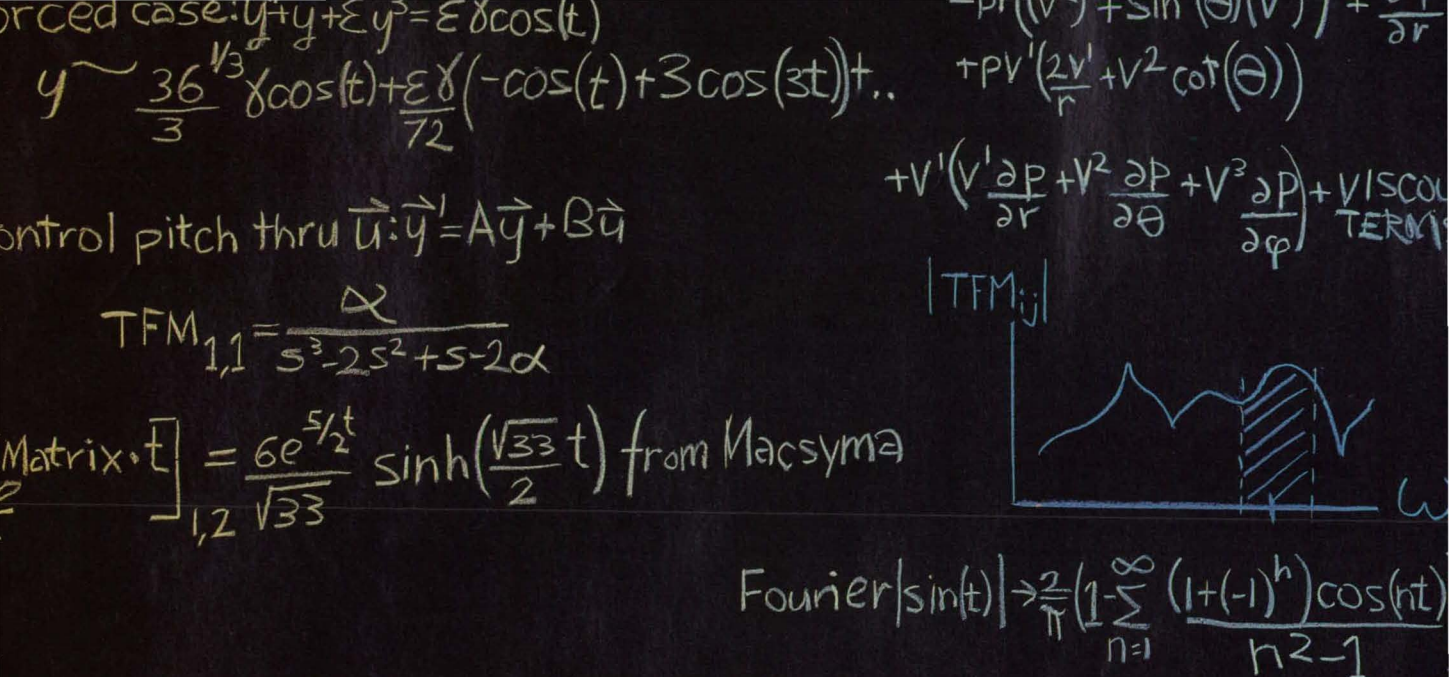 orced case: y̎+y+εy³=εγcos(t)
y ~ 36^{1/3}/3 γcos(t)+εγ/72(-cos(t)+3cos(3t))+..
ontrol pitch thru u⃗: y⃗'=Ay⃗+Bu⃗
TFM_{1,1}=α/(s³-2s²+s-2α)
Matrix·t]_{1,2} = 6e^{5/2 t}/√33 sinh(√33/2 t) from Macsyma
+ρV¹(2V¹/r+V² cot(θ))
+V¹(V¹∂ρ/∂r+V²∂ρ/∂θ+V³∂ρ/∂φ)+VISCOU
TERMS
|TFM_{ij}|
ω
Fourier|sin(t)|→2/π(1-∑_{n=1}^{∞} (1+(-1)^n)cos(nt)/(n²-1)